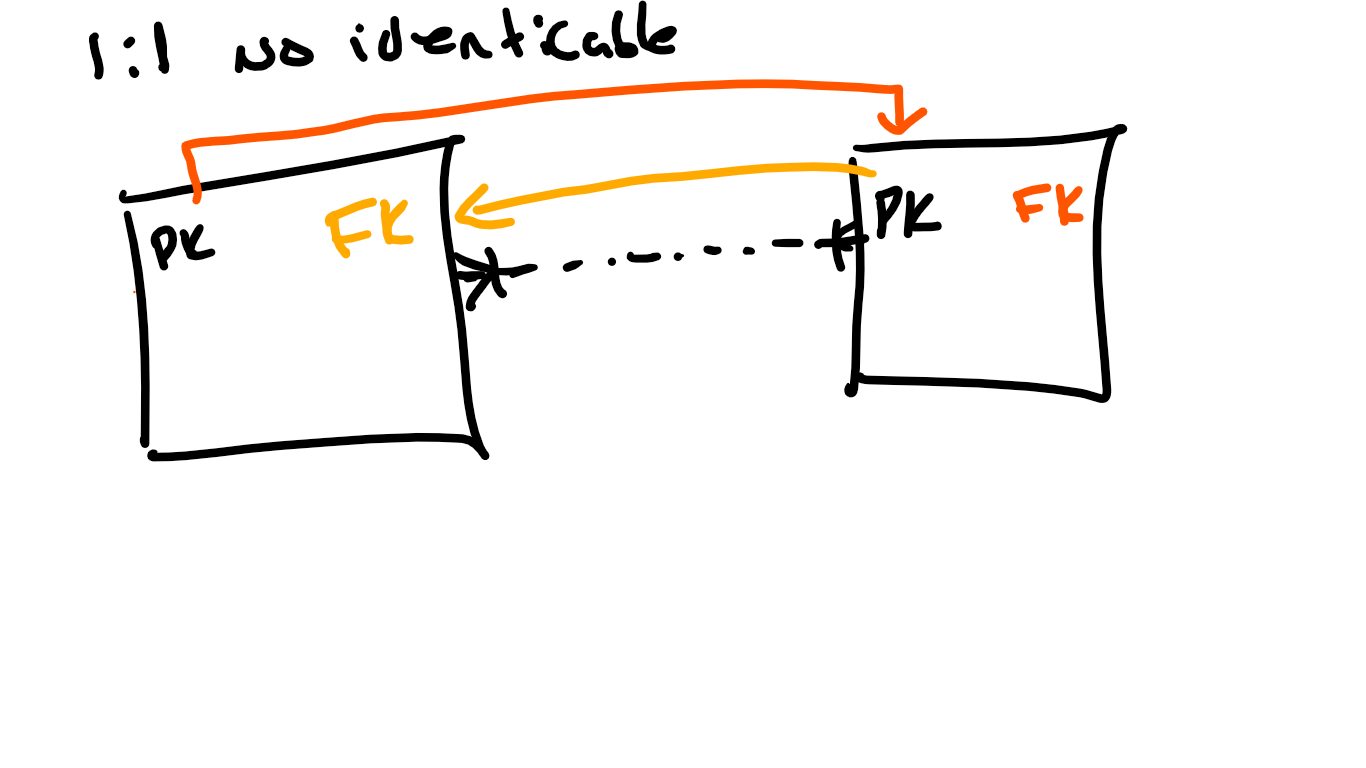 1:1 no identicable
PK FK
PK FK